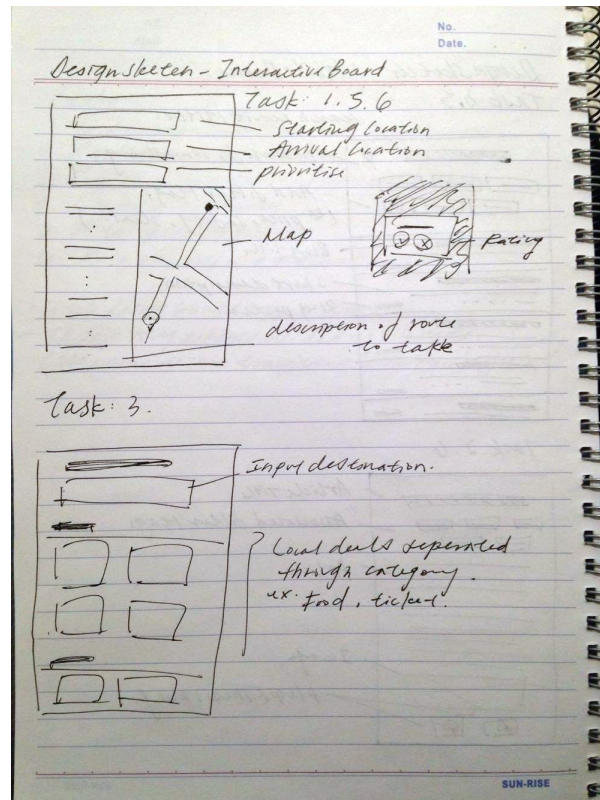 No.
Date.
Design sketch - Interactive Board
Task: 1.5.6
Starting location
Arrival location
prioritise
Map
Rating
description of route
to take
Task: 3.
Input destination.
Local deals seperated
through category.
ex. Food, ticket.
SUN-RISE